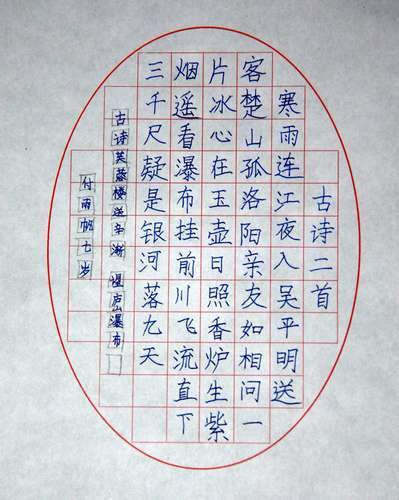 古诗二首
寒雨连江夜入吴平明送
客楚山孤洛阳亲友如相问一
片冰心在玉壶日照香炉生紫
烟遥看瀑布挂前川飞流直下
三千尺疑是银河落九天
古诗芙蓉楼送辛渐 望庐山瀑布
付雨帆七岁